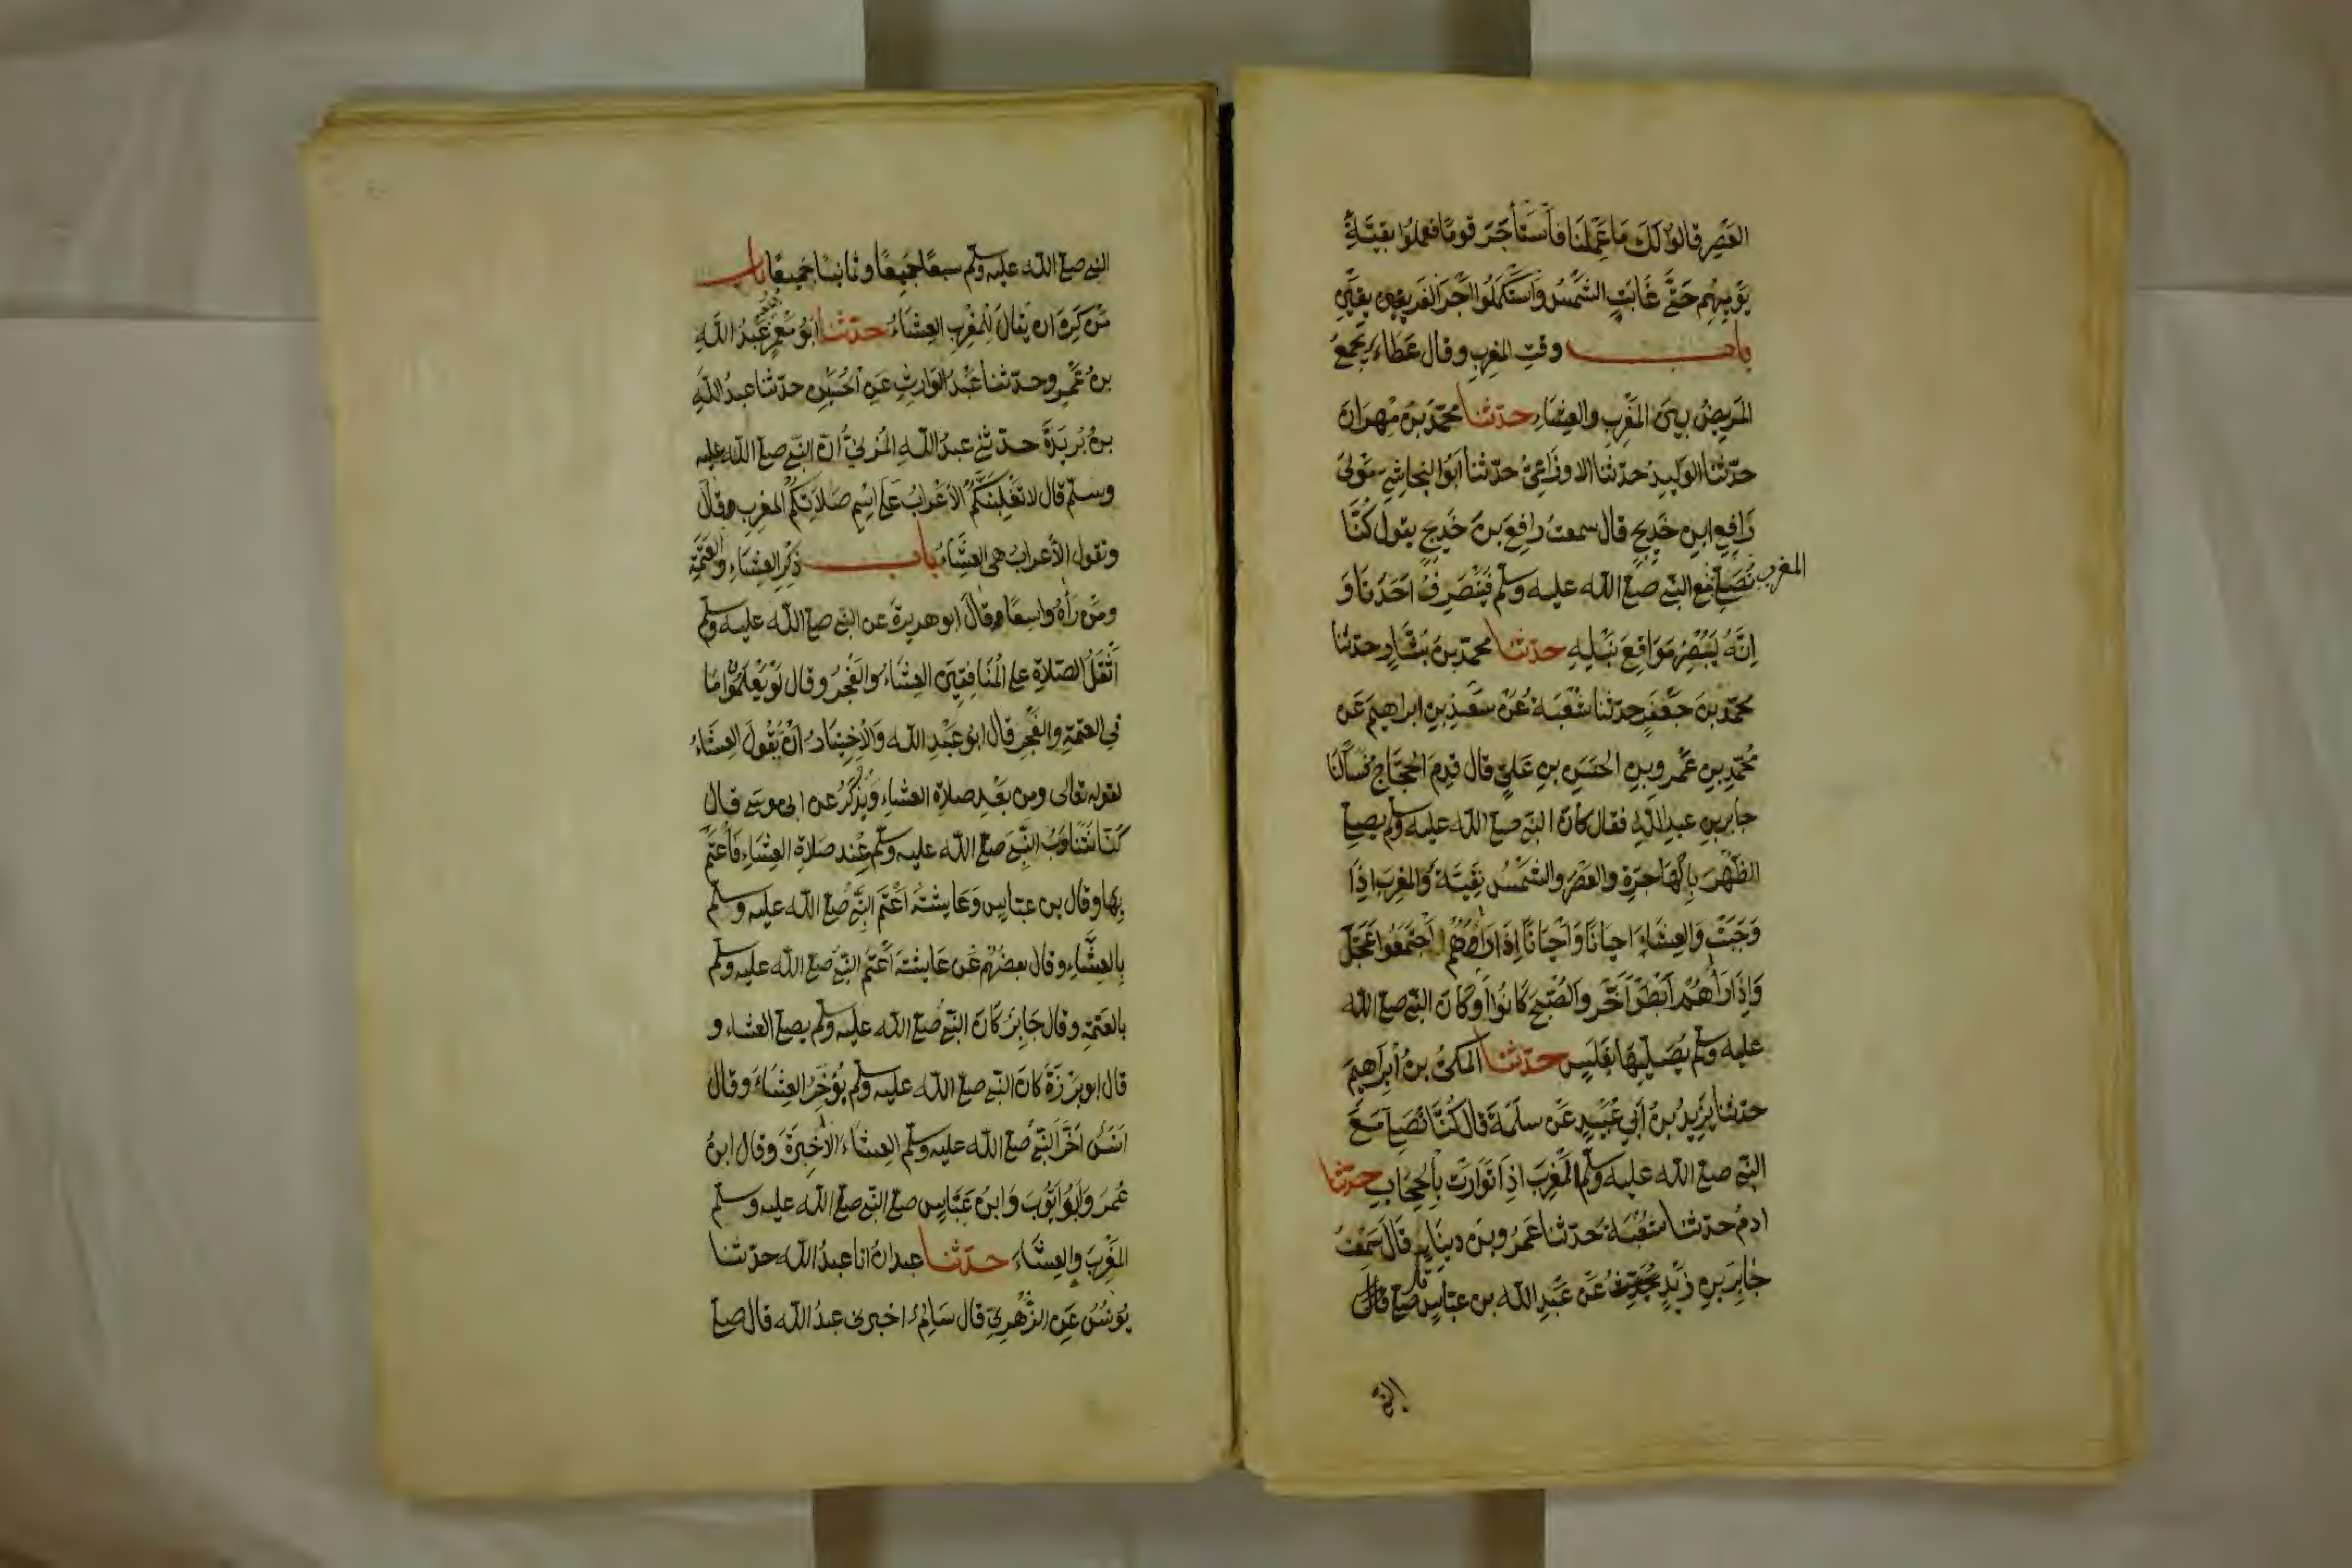 العَصْرِ قالوا لَكَ مَا عَمِلْنَا فَأسْتَأجَرَ قومًا فعملُوا بقيَّةَ
يَوْمِهِم حَتَّى غَابَتِ الشَّمْسُ وَاسْتَكْمَلُوا اَجْرَ الفَرِيقَيْنِ
باب وقتِ المغرِبِ وقال عَطَاء يَجْمَعُ
المَرِيضُ بينَ المَغْرِبِ والعِشَاءِ حدّثنا محمّدُ بنُ مِهرَانَ
حدّثنا الوَلِيدُ حدّثنا الاوزَاعِيُّ حدّثنا اَبُو النجاشِي مَوْلى
رَافِعِ ابنِ خَدِيجٍ قال سمعتُ رافِعَ بنَ خَدِيجٍ يقولُ كُنَّا
نُصَلِّي المغرب مَعَ النَّبِي صلى الله عليه وسلم فَيَنْصَرِفُ اَحَدُنَا وَ
اِنَّهُ لَيُبْصِرُ مَوَاقِعَ نَبْلِهِ حدثنا محمّد بنُ بَشَّارٍ وحدثنا
محمّد بنُ جَعْفَرٍ حدّثنا شُعْبَةُ عَنْ سَعْدِ بنِ ابراهِيمَ عَن
مُحَمّدِ بنِ عَمْرِو بنِ الحَسَنِ بنِ عَلِيٍّ قال قدِمَ الحَجَّاجُ فَسَأَلْنَا
جابرَ بنِ عبدِاللهِ فقال كانَ النبي صلى الله عليه وسلم يصلي
الظُّهْرَ بِالْهَاجِرَةِ والعَصْرَ والشَّمْسُ نَقِيَّة وَالمغرِبَ اِذَا
وَجَبَتْ وَالعِشَاءَ اَحيَانًا وَاَحْيَانًا اِذَا رَاهُمُ اجْتَمَعُوا عَجَّلَ
وَاِذَا رَاهُمْ اَبْطَؤُا اَخَّرَ وَالصُّبْحَ كَانُوا اَوْ كَانَ النّبِي صلى الله
عليه وسلم يُصَلِّيهَا بِغَلَسٍ حدّثنا المكيُّ بنُ اِبْرَاهِيمَ
حدّثنا يَزِيدُ بنُ اَبي عُبَيْدٍ عَنْ سلَمَةَ قَال كُنَّا نُصَلِّي مَعَ
النَّبِي صلى الله عليه وسلم المَغْرِبَ اِذَا تَوَارَتْ بِالْحِجَابِ حدثنا
ادمُ حدّثنا شُعْبَةُ حَدّثنا عَمْرُو بنُ دينَارٍ قَالَ سَمِعْتُ
جَابِرَ بنِ زَيْدٍ عَنْ عَبْدِ الله بنِ عبّاسٍ قال صلى
النبي
النبي صلى الله عليه وسلم سبعًا جَمِيعًا وثمانيًا جَمِيعًا باب
مَنْ كَرِهَ ان يُقالَ لِلمَغْرِبِ العِشَاءُ حدّثنا اَبُو مَعْمَرٍ عَبْدُ اللهِ
بنُ عَمْرٍو حدّثنا عَبْدُ الوارِثِ عَنِ الحُسَيْنِ حدّثنا عبدُ اللهِ
بنُ بُرَيْدَةَ حدّثني عبدُ اللهِ المُزنيُّ اَنّ النَّبِي صلى الله عليه
وسلّم قال لا تَغْلِبَنَّكُمُ الاَعْرَابُ عَلَى اسْمِ صَلاَتِكُمُ المغرِبِ قال
وتقول الأعرابُ هِيَ العِشَاءُ باب ذِكْرِ العِشَاءِ وَالعَتَمَةِ
ومَنْ رَآهُ وَاسِعًا وقالَ ابو هريرةَ عن النبي صلى الله عليه وسلم
أثْقَلُ الصّلاةِ على المُنَافِقِينَ العِشَاءُ والفَجْرُ وقال لَوْ يَعْلَمُونَ مَا
في العتمةِ والفَجْرِ قال ابو عَبْدِ الله وَالاِخْتِيَارُ اَنْ يَقُولَ العِشَاءُ
لقوله تعالى ومن بَعْدِ صلاة العشاءِ وَيُذْكَرُ عن ابي موسى قال
كُنّا نَتَنَاوَبُ النَّبِيَّ صلى الله عليه وسلم عِنْد صَلاَةِ العِشَاءِ فَأعْتَمَ
بِهَا وقال بن عبّاسٍ وَعَايشةُ اَعْتَمَ النَّبِيُّ صلى الله عليه وسلم
بِالعِشَاءِ وقال بعضُهُمْ عَن عَايشةَ اَعْتَمَ النّبيُّ صلى الله عليه وسلم
بالعَتَمَةِ وقال جَابِرٌ كَانَ النّبيُّ صلى الله عليه وسلم يصلي العشاء و
قال ابو بَرْزَةَ كانَ النبي صلى الله عليه وسلم يُؤَخِّرُ العِشَاءَ وَقال
اَنَسٌ اَخَّرَ النَّبِيُّ صلى الله عليه وسلم العِشَاءَ الاَخِيرَةَ وَقال ابنُ
عُمَرَ وَابُو اَيُّوبَ وَابنُ عَبَّاسٍ صلى النّبي صلى الله عليه وسلم
المَغْرِبَ والعِشَاءَ حدّثنا عبدانُ انا عبدُ الله حدّثنا
يُونُسُ عَنِ الزُّهْرِيِّ قال سَالِمٌ اخبرني عبدُ الله قال صلى